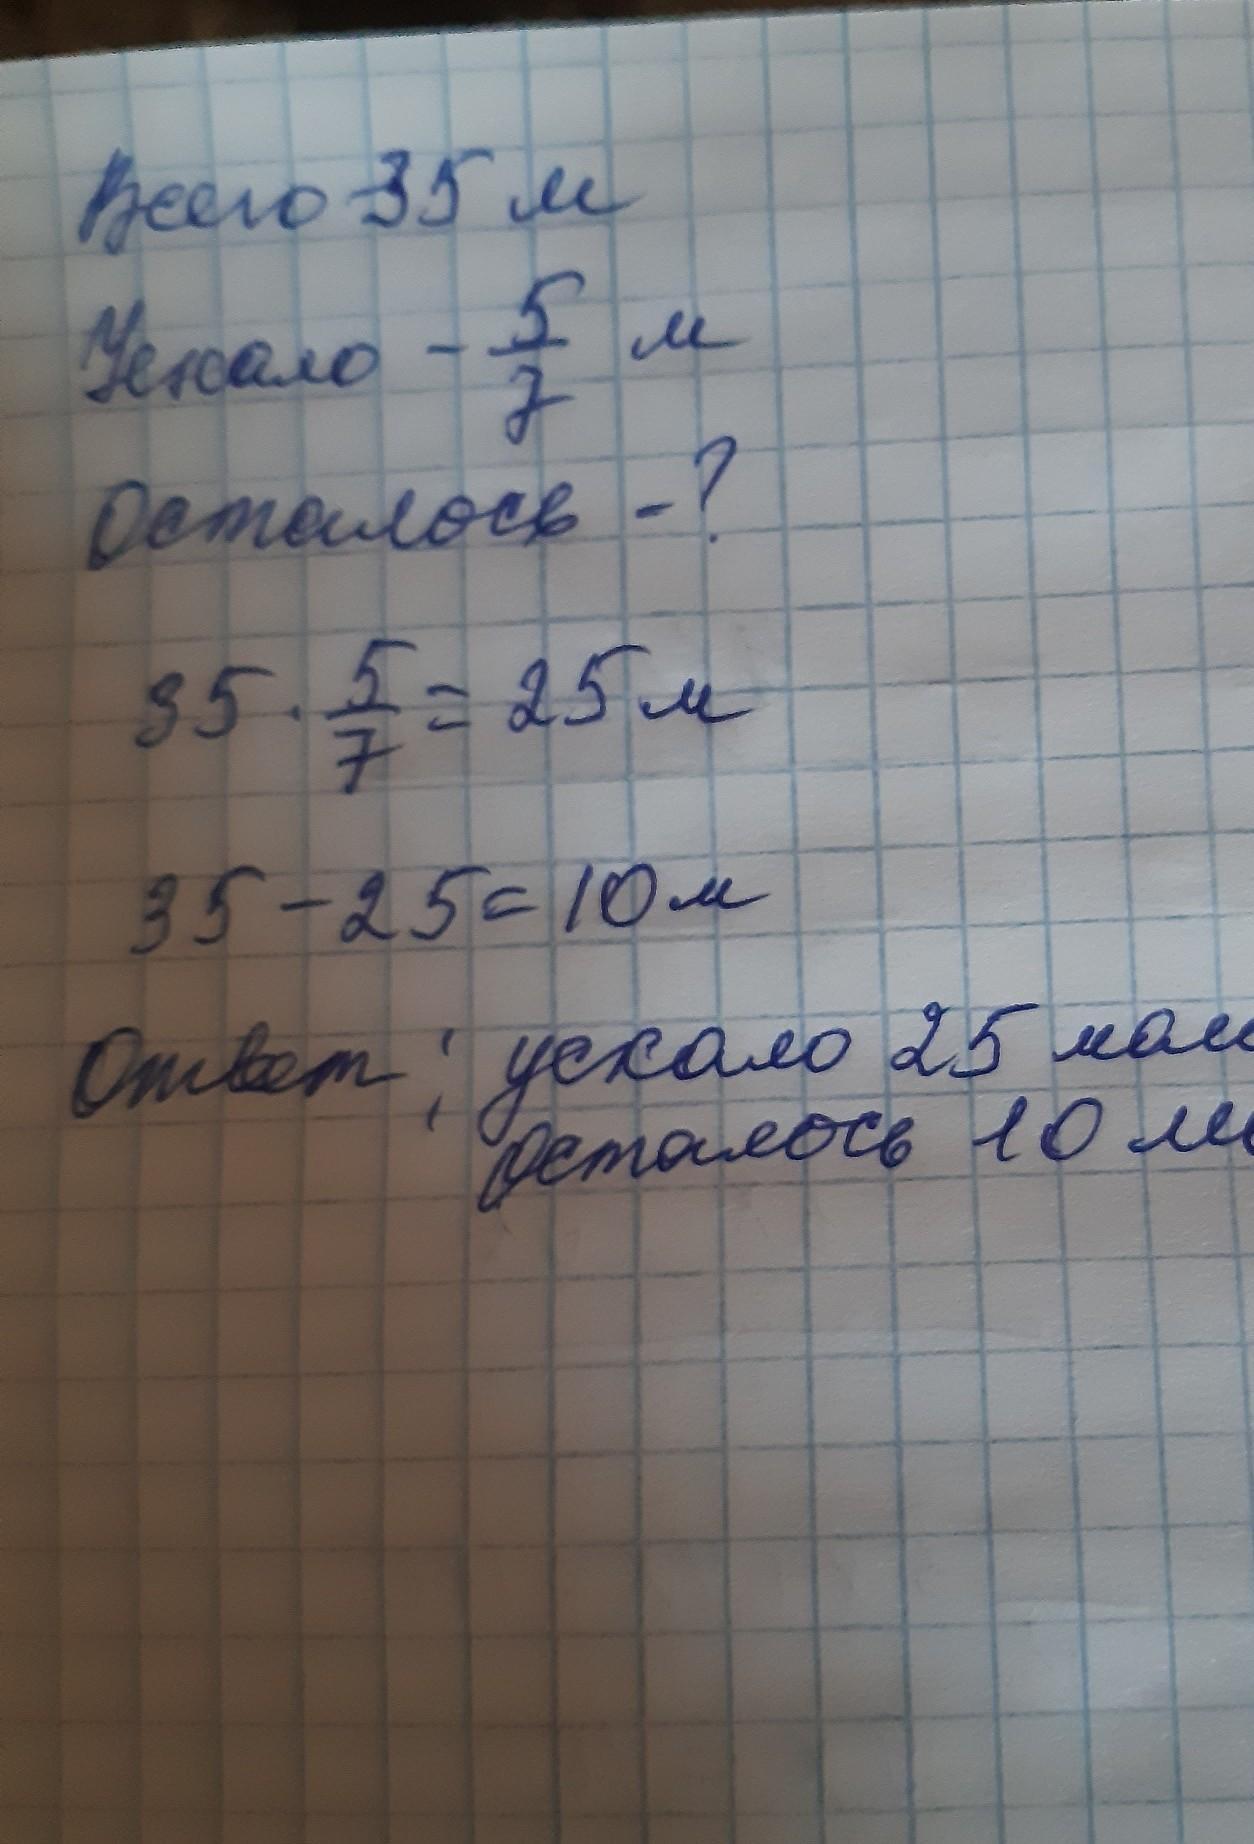 Всего - 35 м
Уехало - 5/7 м
Осталось - ?
35 · 5/7 = 25 м
35 - 25 = 10 м
Ответ: уехало 25
Осталось 10